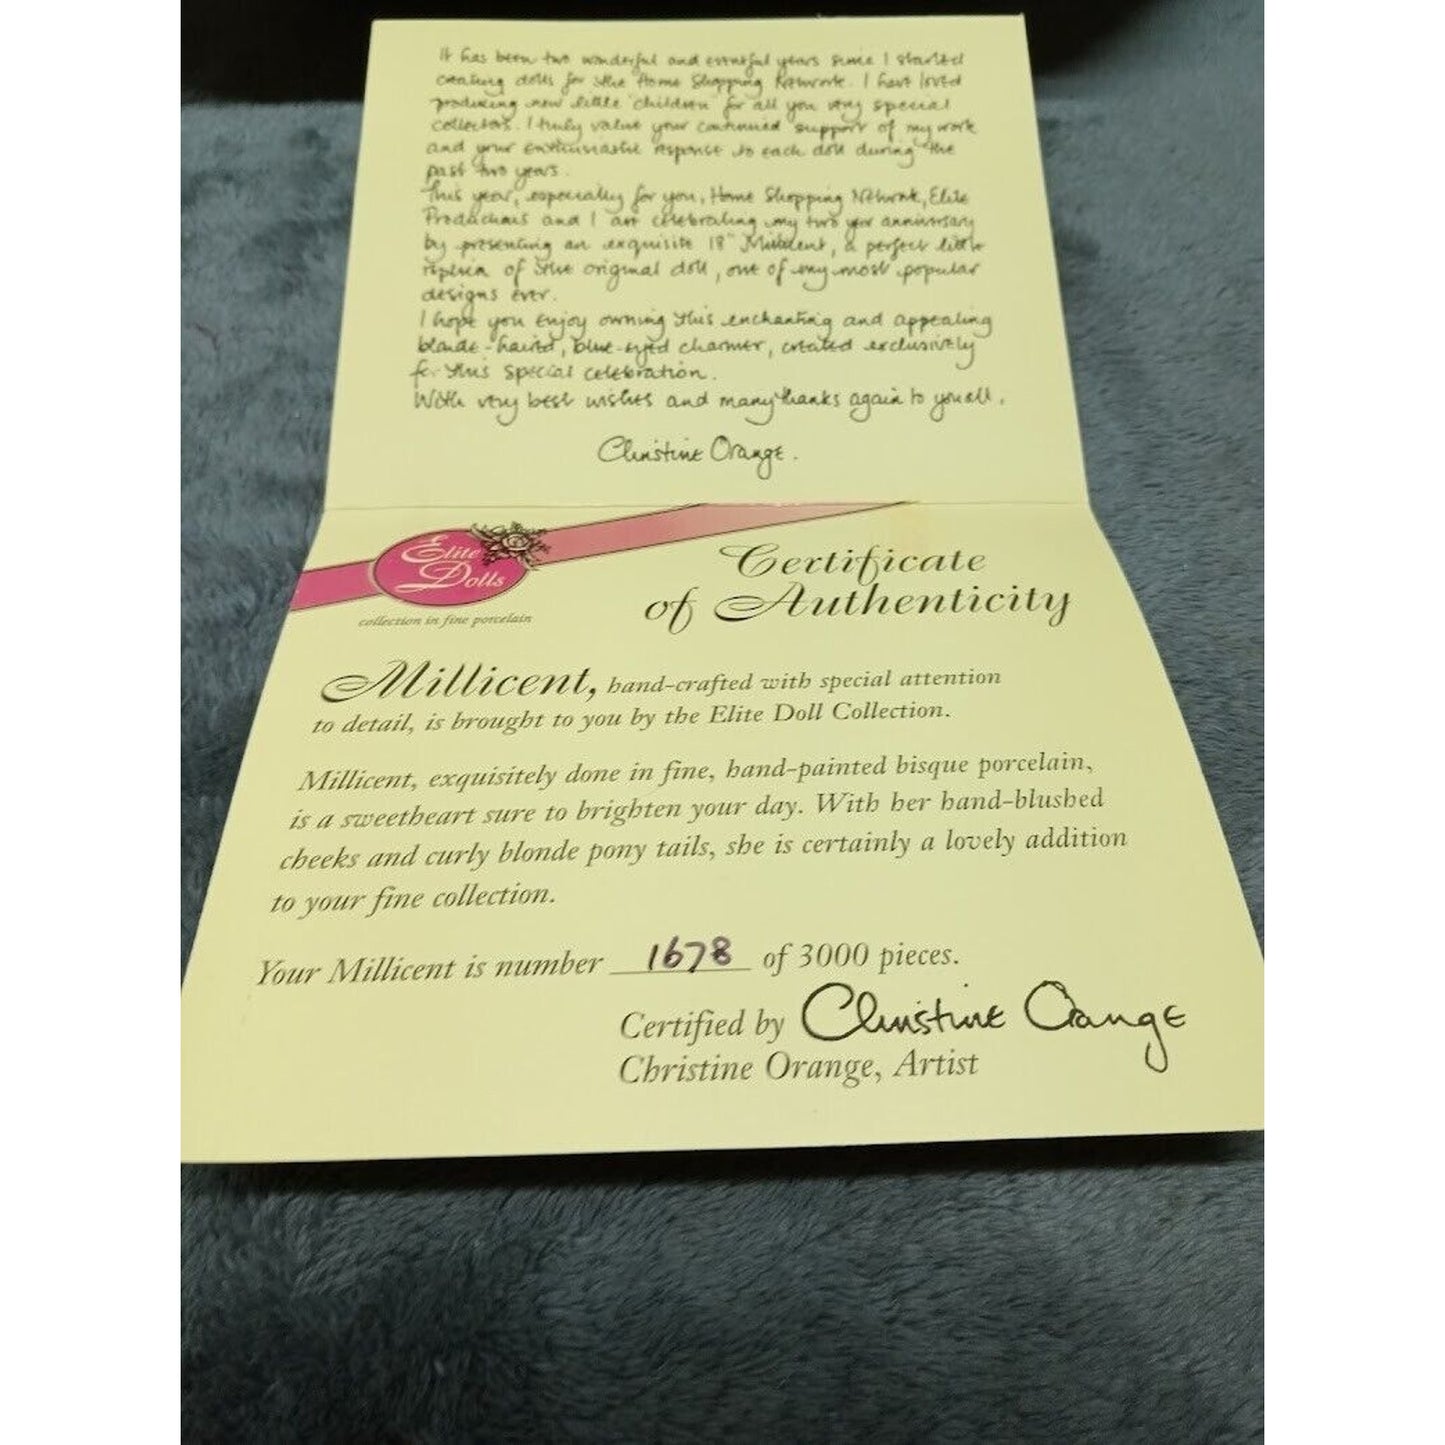 It has been two wonderful and eventful years since I started
creating dolls for the Home Shopping Network. I have loved
producing new little 'children' for all you very special
collectors. I truly value your continued support of my work
and your enthusiastic response to each doll during the
past two years.
This year, especially for you, Home Shopping Network, Elite
Productions and I are celebrating my two year anniversary
by presenting an exquisite 18" Millicent, a perfect little
replica of the original doll, one of my most popular
designs ever.
I hope you enjoy owning this enchanting and appealing
blonde-haired, blue-eyed charmer, created exclusively
for this special celebration.
With very best wishes and many thanks again to you all,
Christine Orange.
Elite
Dolls
collection in fine porcelain
Certificate
of Authenticity
Millicent, hand-crafted with special attention
to detail, is brought to you by the Elite Doll Collection.
Millicent, exquisitely done in fine, hand-painted bisque porcelain,
is a sweetheart sure to brighten your day. With her hand-blushed
cheeks and curly blonde pony tails, she is certainly a lovely addition
to your fine collection.
Your Millicent is number 1678 of 3000 pieces.
Certified by Christine Orange
Christine Orange, Artist